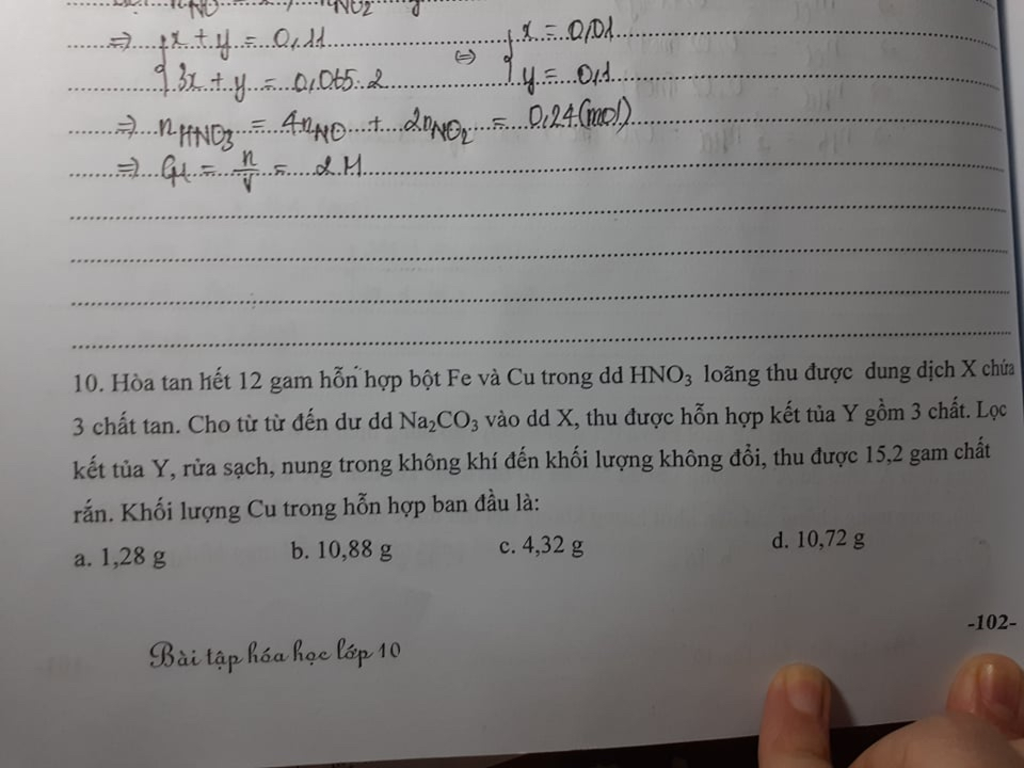 ⇒ { x + y = 0,11 ⇔ { x = 0,01
3x + y = 0,065.2 y = 0,1
⇒ nHNO₃ = 4nNO + 2nNO₂ = 0,24 (mol)
⇒ CM = n/V = 2M
10. Hòa tan hết 12 gam hỗn hợp bột Fe và Cu trong dd HNO₃ loãng thu được dung dịch X chứa
3 chất tan. Cho từ từ đến dư dd Na₂CO₃ vào dd X, thu được hỗn hợp kết tủa Y gồm 3 chất. Lọc
kết tủa Y, rửa sạch, nung trong không khí đến khối lượng không đổi, thu được 15,2 gam chất
rắn. Khối lượng Cu trong hỗn hợp ban đầu là:
a. 1,28 g b. 10,88 g c. 4,32 g d. 10,72 g
-102-
Bài tập hóa học lớp 10